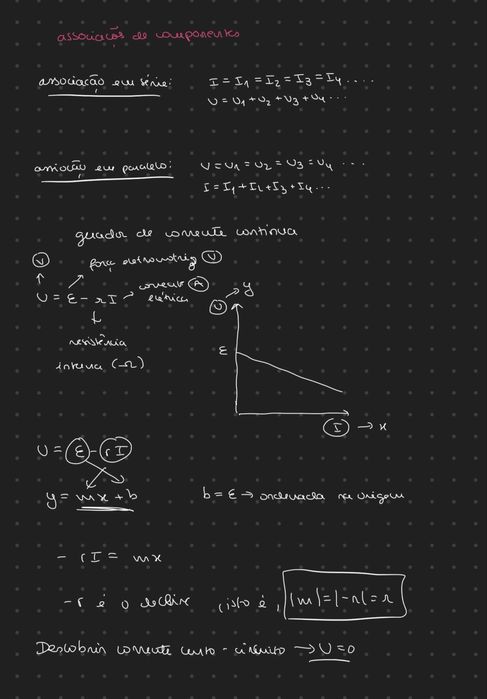 associações de componentes
associação em série: I = I1 = I2 = I3 = I4 ....
U = U1 + U2 + U3 + U4 ...
associação em paralelo: U = U1 = U2 = U3 = U4 ...
I = I1 + I2 + I3 + I4 ...
gerador de corrente contínua
V força eletromotriz V
U = ε - rI → corrente elétrica A
resistência
interna (Ω)
U → y
ε
I → x
U = ε - rI
y = mx + b b = ε → ordenada na origem
- rI = mx
- r é o declive , isto é, |m| = |-r| = r
Descobrir corrente curto-circuito → U = 0